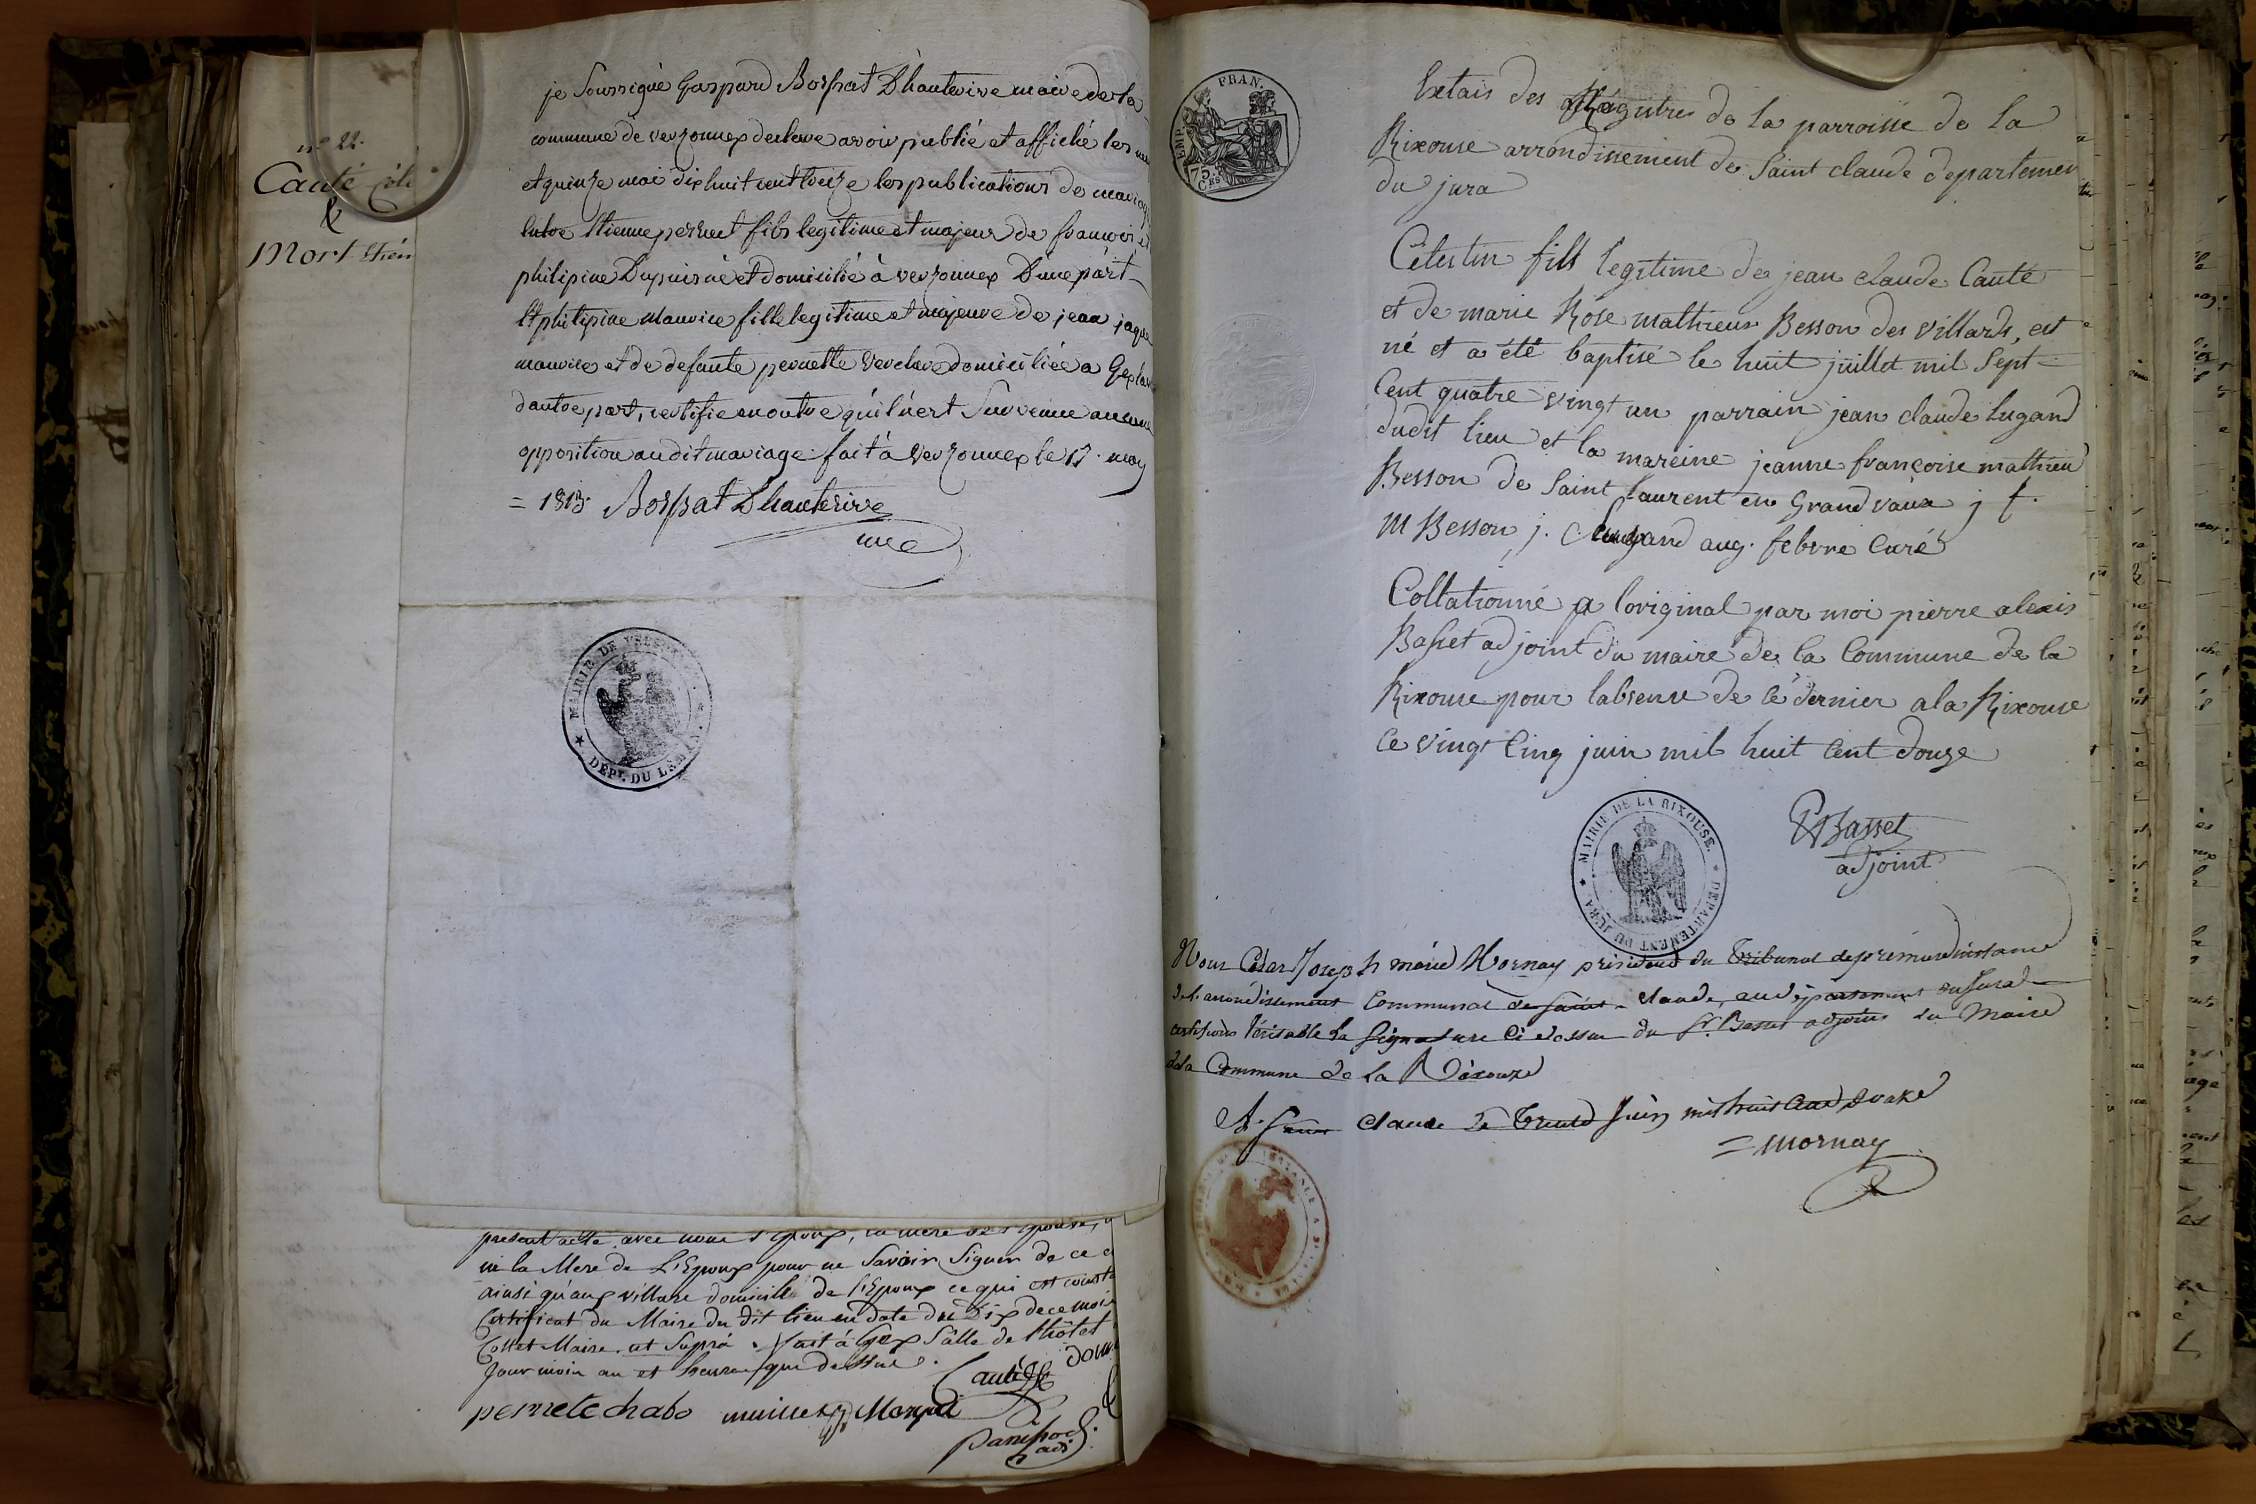 n° 22.
Cauté Céle
&
Mort Etien
je Soussigné Gaspard Bospat Dhauterive maire de la
commune de verzonnex declare avoir publié et affiché les
et quinze mai dixhuit cent treize les publications de mariage
Entre Etienne perruet fils legitime et majeur de francois et
philipine Dupuis né et domicilié à verzonnex D'une part
Et philipine Maurice fille legitime et majeure de jean jaque
maurice et de defunte pernette domiciliée a Gex
dautre part, certifie en outre qu'il n'est Survenue aucune
opposition audit mariage. fait à Verzonnex le 17. may
= 1813. Bospat Dhauterive
MAIRIE DE VERSO
DÉPT. DU LÉMAN.
présent acte avec nous l'époux, la mère de l'épouse,
ni la Mere de L'Epoux pour ne Savoir Signer de ce
ainsi qu'aux villars domicile de l'Epoux ce qui est const
Certificat du Maire du dit lieu en date du Dix de ce mois
Collet Maire. ut Supra. fait à Gex Salle de l'hôtel
Jour mois an et heure que dessus.
Cauté
pernete chabo
EMP. FRAN.
75. Ces
Extais des Régistres de la parroisse de la
Rixouse arrondissement de Saint claude departement
du jura
Célestin fils legitime de jean claude Cauté
et de marie Rose mathieux Besson des villards, est
né et a été baptisé le huit juillet mil Sept
Cent quatre vingt un parrain jean claude lugand
dudit lieu et la mareine jeanne françoise mathieu
Besson de Saint laurent en Grandvaux j f.
M Besson j. C lugand aug. febvre Curé
Collationné a loriginal par moi pierre alexis
Basset adjoint du maire de la Commune de la
Rixouse pour labsence de ce dernier a la Rixouse
ce vingt Cinq juin mil huit Cent douze
MAIRIE DE LA RIXOUSE.
DÉPARTEMENT DU JURA
PABasset
adjoint
Nous César Joseph marie Mornay président du Tribunal de première instance
de l'arrondissement Communal de Saint-claude, au département du Jura
certifions véritable la Signature Ci dessus du Sr. Basset adjoint du Maire
de la Commune de la Rixouze
A Saint Claude le Trente Juin mil huit Cent douze
= Mornay